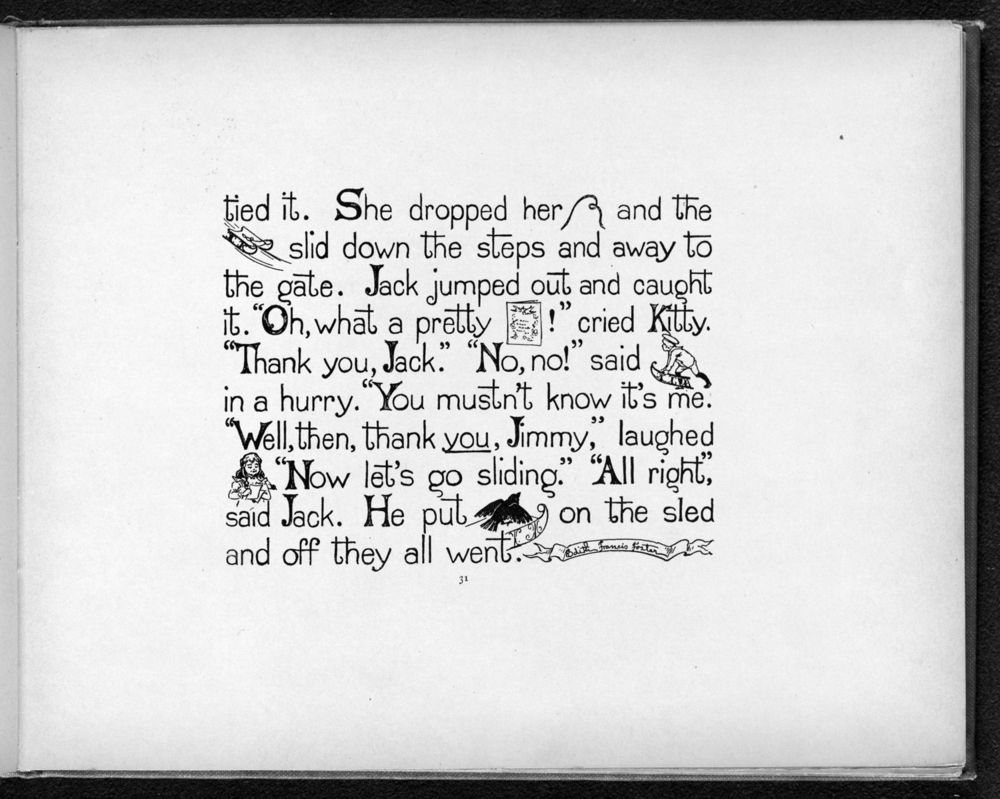 tied it. She dropped her and the
slid down the steps and away to
the gate. Jack jumped out and caught
it. "Oh, what a pretty !" cried Kitty.
"Thank you, Jack." "No, no!" said
in a hurry. "You mustn't know it's me."
"Well, then, thank you, Jimmy," laughed
"Now let's go sliding." "All right,"
said Jack. He put on the sled
and off they all went.
Edith Francis Foster
31